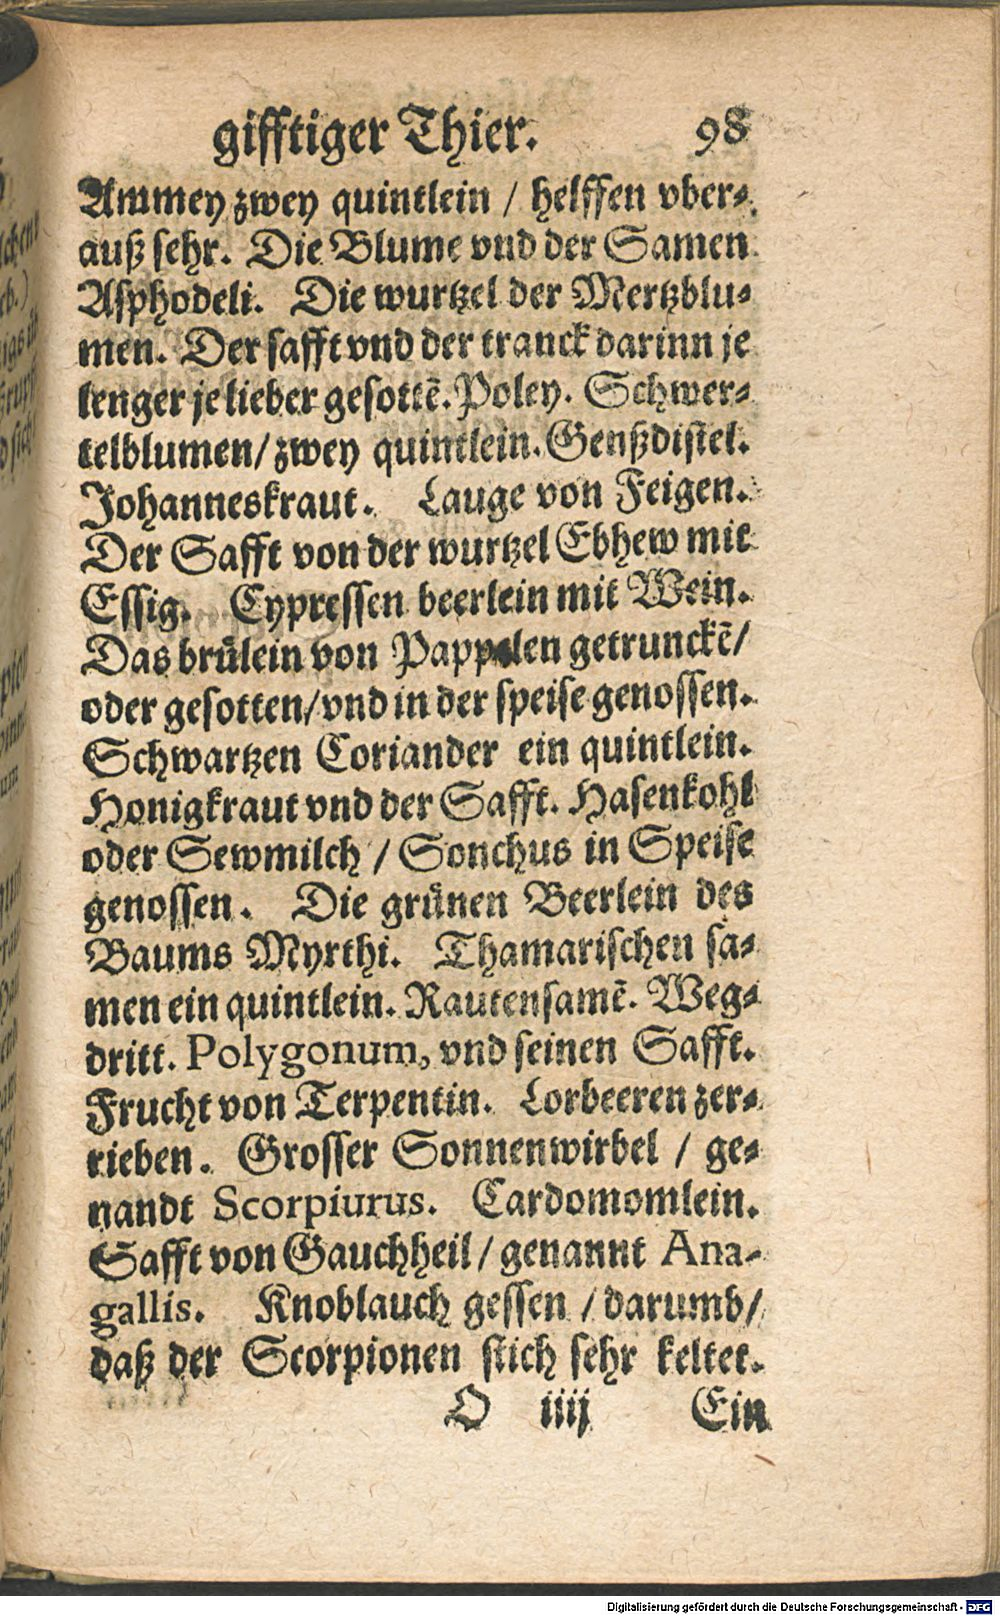 gifftiger Thier. 98
Ammey zwey quintlein / helffen vber⸗
auß sehr. Die Blume vnd der Samen
Asphodeli. Die wurtzel der Mertzblu⸗
men. Der safft vnd der tranck darinn je
lenger je lieber gesottē. Poley. Schwer⸗
telblumen / zwey quintlein. Genßdistel.
Johanneskraut. Lauge von Feigen.
Der Safft von der wurtzel Ebhew mit
Essig. Cypressen beerlein mit Wein.
Das brůlein von Pappelen getrunckē /
oder gesotten / vnd in der speise genossen.
Schwartzen Coriander ein quintlein.
Honigkraut vnd der Safft. Hasenkohl
oder Sewmilch / Sonchus in Speise
genossen. Die grůnen Beerlein des
Baums Myrthi. Thamarischen sa⸗
men ein quintlein. Rautensamē. Weg⸗
dritt. Polygonum, vnd seinen Safft.
Frucht von Terpentin. Lorbeeren zer⸗
rieben. Grosser Sonnenwirbel / ge⸗
nandt Scorpiurus. Cardomomlein.
Safft von Gauchheil / genannt Ana-
gallis. Knoblauch gessen / darumb /
daß der Scorpionen stich sehr keltet.
O iiij Ein
Digitalisierung gefördert durch die Deutsche Forschungsgemeinschaft - DFG